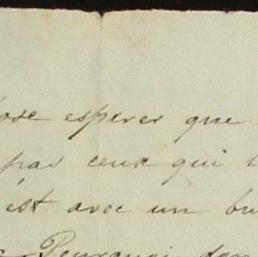 ose esperer que
pas ceux qui
est avec un bu
Pourquoi don